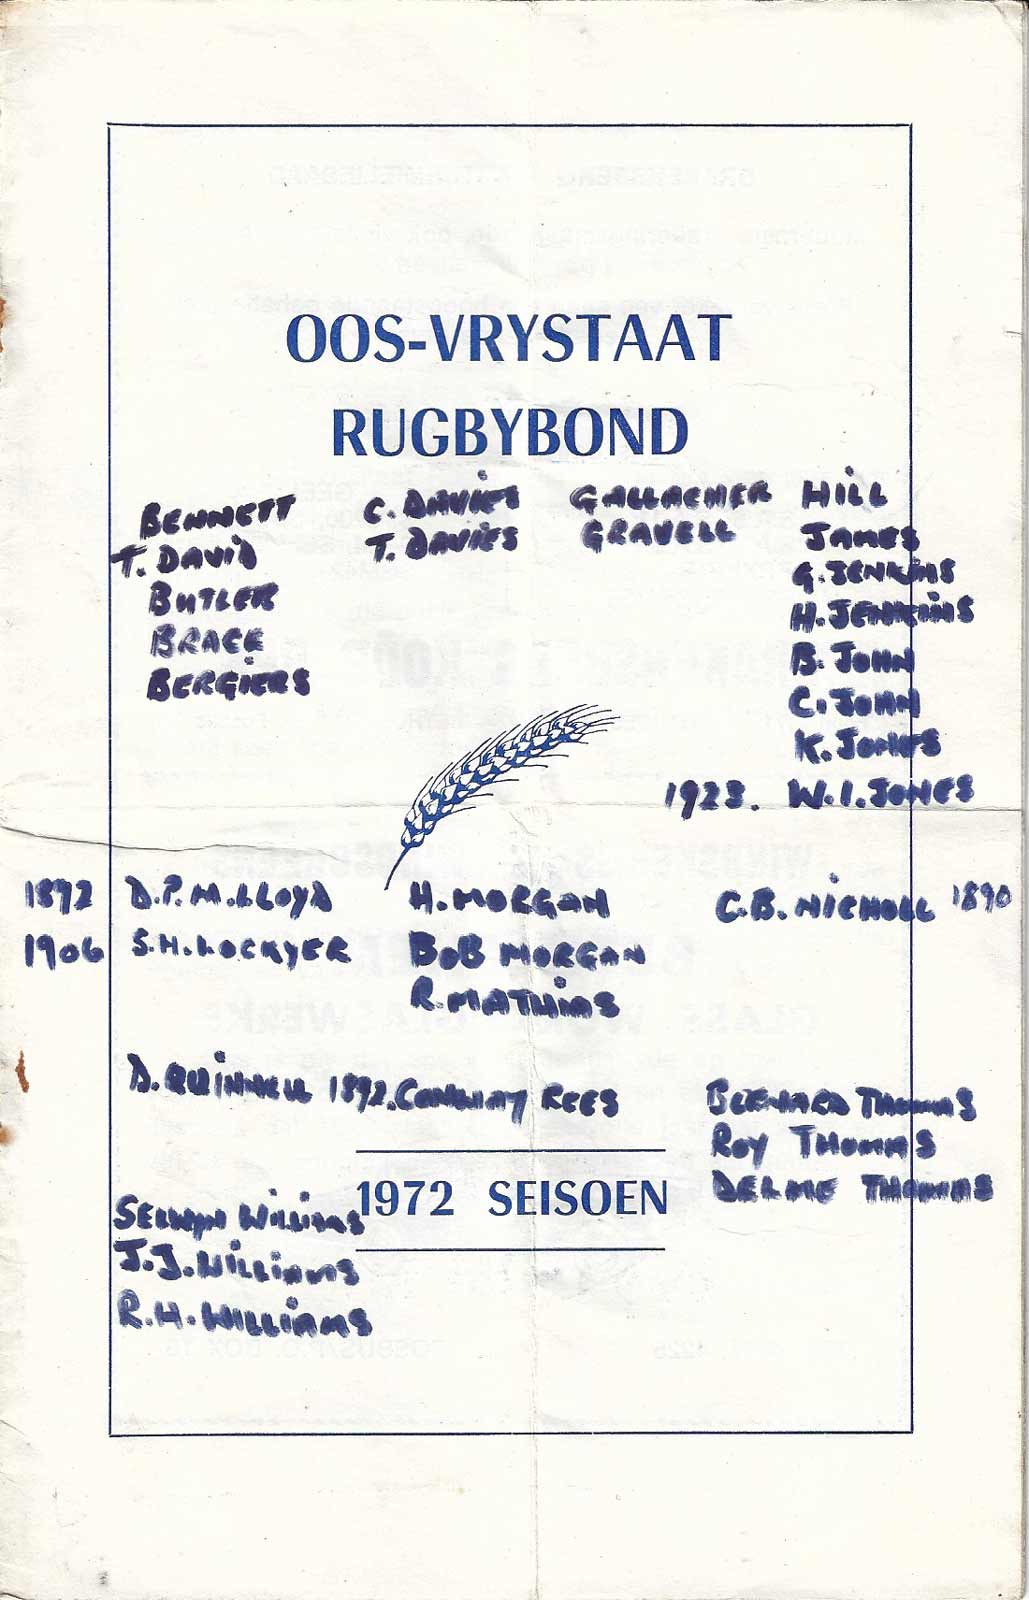 OOS-VRYSTAAT
RUGBYBOND
BENNETT
T. DAVID
BUTLER
BRACE
BERGIERS
C. DAVIES
T. DAVIES
GALLACHER
GRAVELL
HILL
JAMES
G. JENKINS
H. JENKINS
B. JOHN
C. JOHN
K. JONES
1923. W. I. JONES
1892 D. P. M. LLOYD
1906 S. H. LOCKYER
H. MORGAN
BOB MORGAN
R. MATHIAS
C. B. NICHOLL 1890
D. QUINNELL 1892. CONWAY REES
BERNARD THOMAS
ROY THOMAS
DELME THOMAS
1972 SEISOEN
SELWYN WILLIAMS
J. J. WILLIAMS
R. H. WILLIAMS